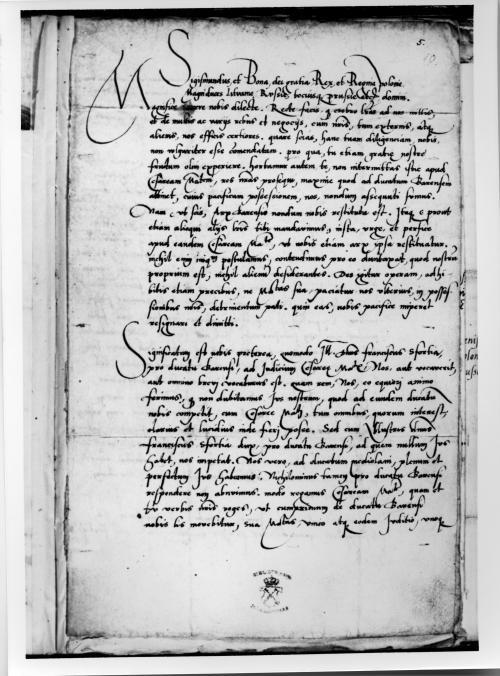 5.
Sigismundus, et Bona, dei gratia Rex, et Regina polonie,
Magniduces lituanie, Russie, domini.
Magnifice syncere nobis dilecte. Recte facis, q crebro lras ad nos mittis,
et de nris ac varys rebus et negocys, cum nris, tum externis, atq
alienis, nos efficis certiores. quare scias, hanc tuam diligenciam, nobis,
non vulgariter esse comendatam. pro qua, tu etiam gratie nostre
fructum olim experiere. hortamur autem te, non intermittas istic apud
Cesaream Matem, res nras prosequi, maxime quod ad ducatum Barensem
attinet, cuius pacificam possessionem, nos, nondum assequuti sumus.
Nam, ut scis, Arx Barensis nondum nobis restituta est. Itaq, e prout
etiam aliquot alys lris tibi mandavimus, insta, urge, et perfice
apud eandem Cesaream Mtem, ut nobis etiam arx ipsa restituatur.
nichil enim iniq postulamus, contendimus pro eo duntaxat, quod nostrum
proprium est, nichil alieni desiderantes. Des igitur operam, adhi
bitis etiam precibus, ne Mtas sua patiatur nos ulterius, in posses
sionibus nris, detrimentum pati. quin eas, nobis pacifice imperet
resignari et dimitti.
Significatum est nobis preterea, quomodo Ill. Dnus franciscus Sfortia,
pro ducatu Barensi, ad Judicium Cesaree Mtis Nos, aut vocaverit,
aut omnino brevi vocaturus est. quam rem, Nos, eo equiori animo
ferimus, q non dubitamus Jus nostrum, quod ad eundem ducatum
nobis competit, cum Cesaree Mti, tum omnibus, quorum interest,
clarius et lucidius inde fieri posse. Sed cum Illustris dnus
franciscus Sfortia dux, pro ducatu Barensi, ad quem nullum Jus
habet, nos impetat. Nos vero, ad ducatum mediolani, plenum et
perfectum Jus habemus. Nichilominus tamen pro ducatu Barensi
respondere non abnuimus. modo rogamus Cesaream Matem, quam et
tu verbis nris roges, ut cumprimum de ducatu Barensi
nobis lis movebitur, sua Maiestas unico atq eodem Juditio, unoq